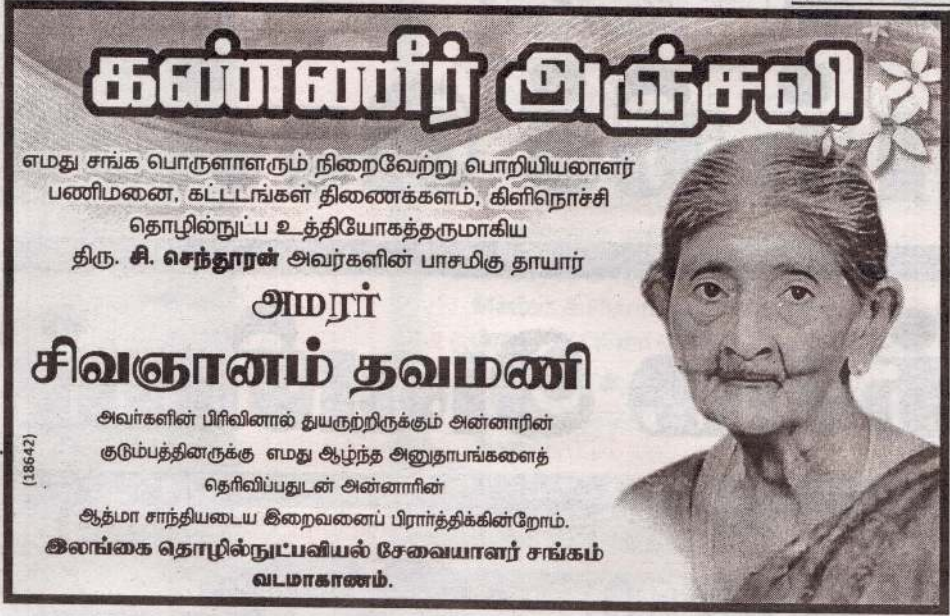 கண்ணீர் அஞ்சலி
எமது சங்க பொருளாளரும் நிறைவேற்று பொறியியலாளர்
பணிமனை, கட்டடங்கள் திணைக்களம், கிளிநொச்சி
தொழில்நுட்ப உத்தியோகத்தருமாகிய
திரு. சி. செந்தூரன் அவர்களின் பாசமிகு தாயார்
அமரர்
சிவஞானம் தவமணி
அவர்களின் பிரிவினால் துயருற்றிருக்கும் அன்னாரின்
குடும்பத்தினருக்கு எமது ஆழ்ந்த அனுதாபங்களைத்
தெரிவிப்பதுடன் அன்னாரின்
ஆத்மா சாந்தியடைய இறைவனைப் பிரார்த்திக்கின்றோம்.
இலங்கை தொழில்நுட்பவியல் சேவையாளர் சங்கம்
வடமாகாணம்.
(18642)